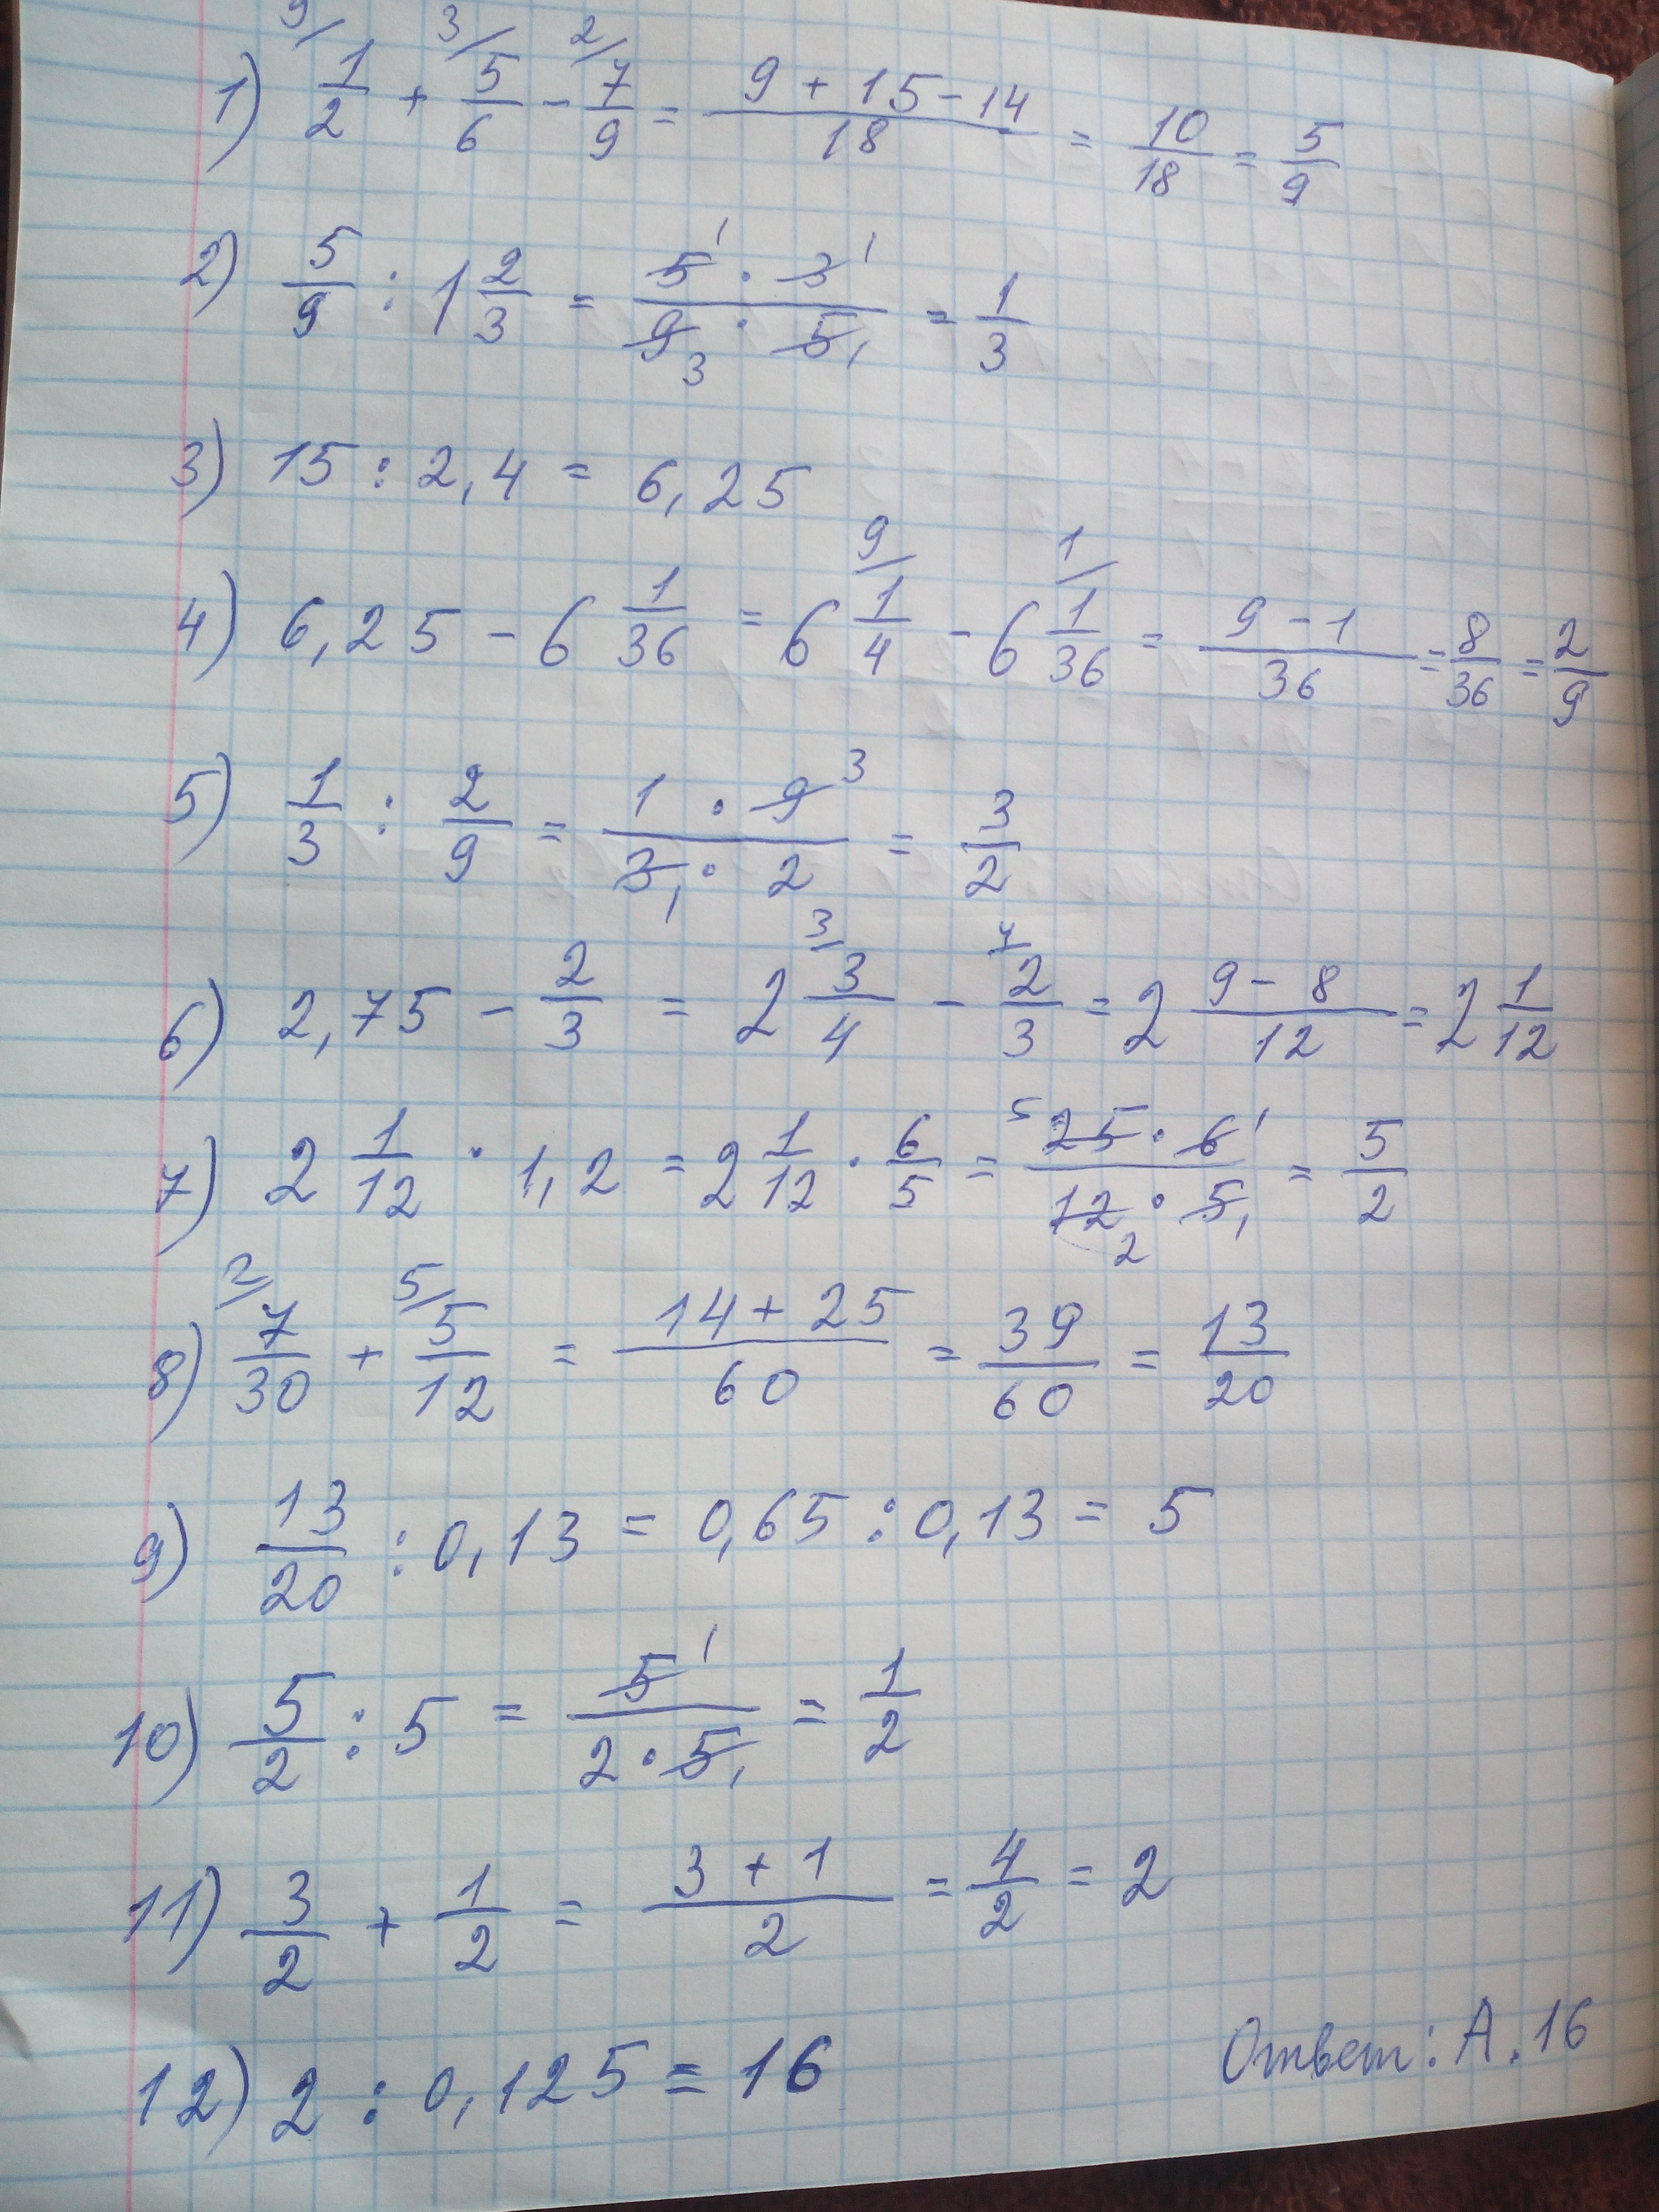 1) 9/ 1/2 + 3/ 5/6 - 2/ 7/9 = (9 + 15 - 14)/18 = 10/18 = 5/9
2) 5/9 : 1 2/3 = (5¹ · 3¹)/(9₃ · 5₁) = 1/3
3) 15 : 2,4 = 6,25
4) 6,25 - 6 1/36 = 6 9/ 1/4 - 6 1/ 1/36 = (9 - 1)/36 = 8/36 = 2/9
5) 1/3 : 2/9 = (1 · 9³)/(3₁ · 2) = 3/2
6) 2,75 - 2/3 = 2 3/ 3/4 - 4/ 2/3 = 2 (9 - 8)/12 = 2 1/12
7) 2 1/12 · 1,2 = 2 1/12 · 6/5 = (⁵25 · 6¹)/(12₂ · 5₁) = 5/2
8) 2/ 7/30 + 5/ 5/12 = (14 + 25)/60 = 39/60 = 13/20
9) 13/20 : 0,13 = 0,65 : 0,13 = 5
10) 5/2 : 5 = 5¹/(2 · 5₁) = 1/2
11) 3/2 + 1/2 = (3 + 1)/2 = 4/2 = 2
12) 2 : 0,125 = 16
Ответ: А. 16